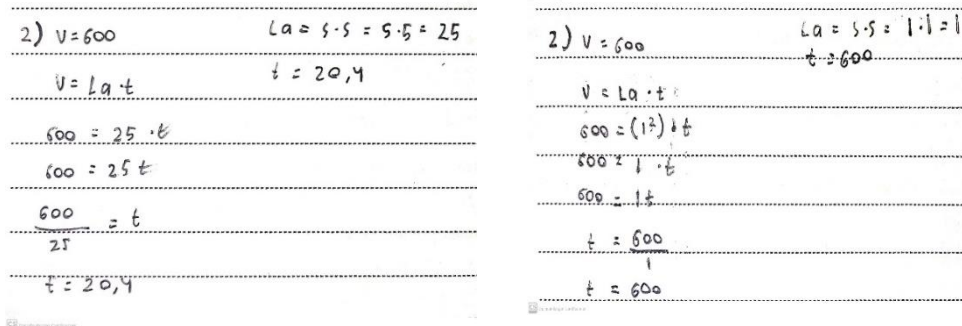 2) V = 600
La = s·s = 5·5 = 25
t = 20,4
V = La·t
600 = 25 ·t
600 = 25 t
600/25 = t
t = 20,4
2) V = 600
La = s·s = 1·1 = 1
t = 600
V = La ·t
600 = (1²) t
600 = 1 ·t
600 = 1t
t = 600/1
t = 600